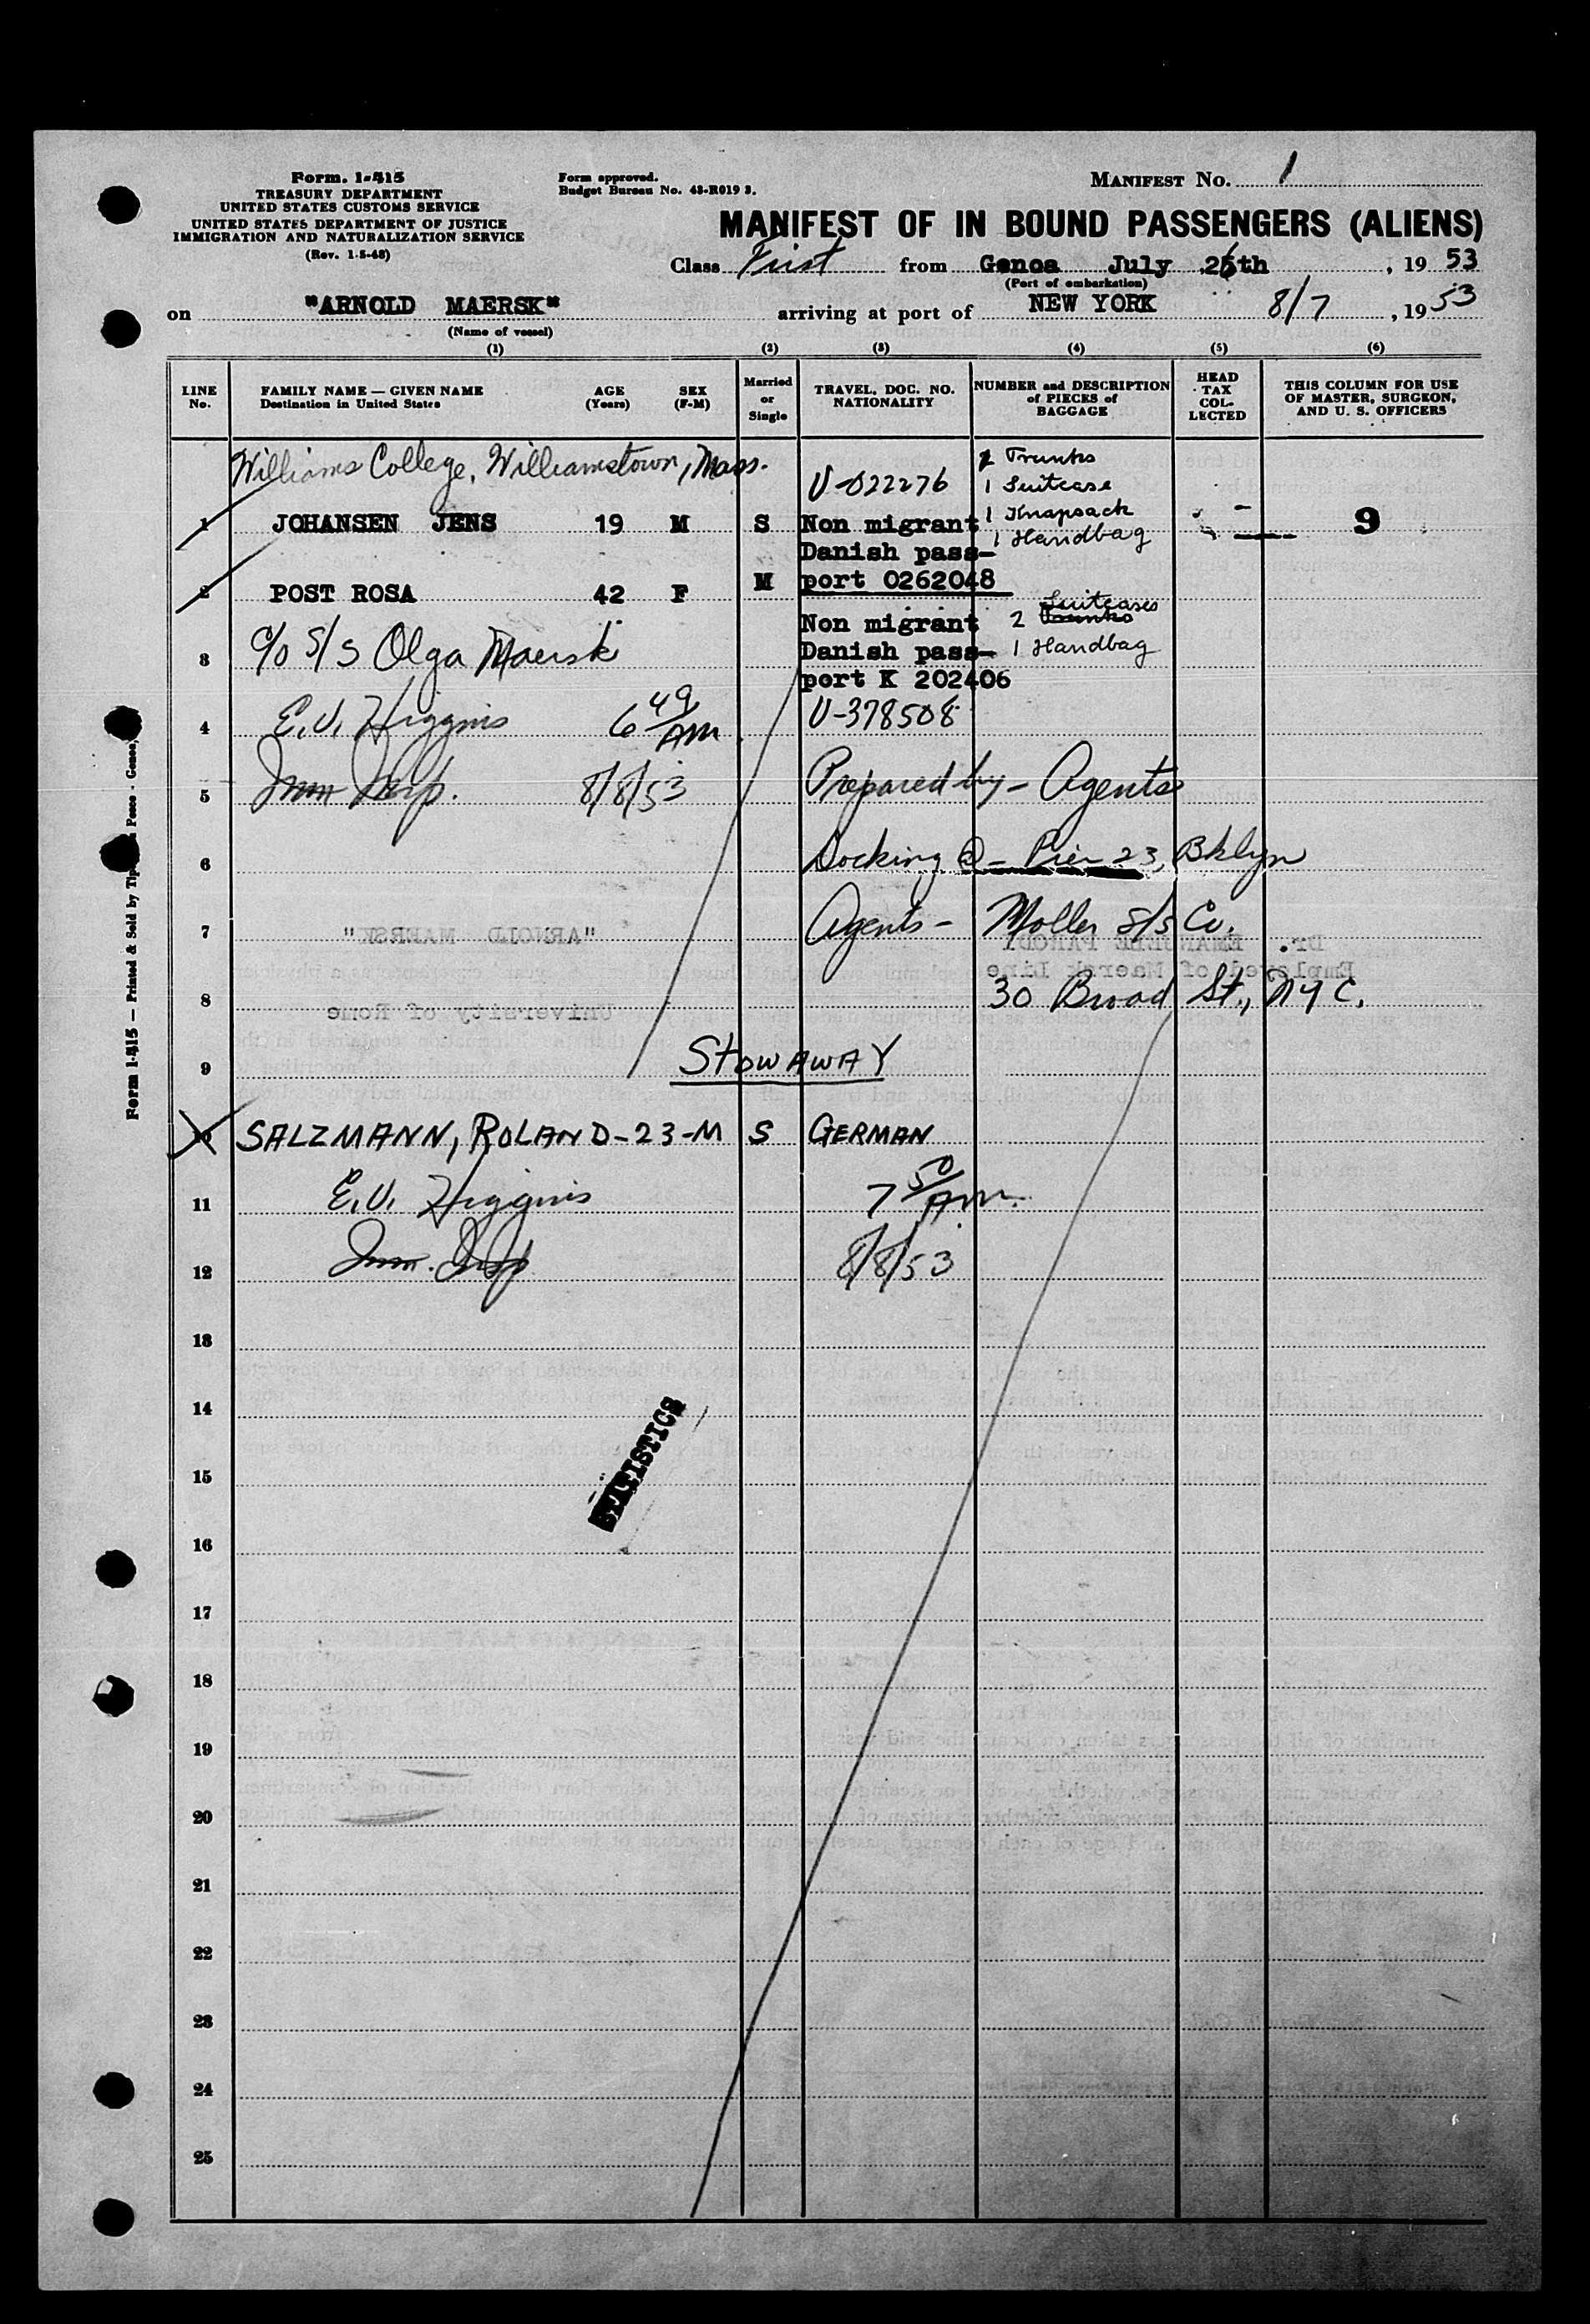 Form. I-415
TREASURY DEPARTMENT
UNITED STATES CUSTOMS SERVICE
UNITED STATES DEPARTMENT OF JUSTICE
IMMIGRATION AND NATURALIZATION SERVICE
(Rev. 1-5-48)
Form approved.
Budget Bureau No. 43-R019 3.
MANIFEST NO. 1
MANIFEST OF IN BOUND PASSENGERS (ALIENS)
Class First from Genoa July 26th, 19 53
(Port of embarkation)
on "ARNOLD MAERSK" arriving at port of NEW YORK 8/7, 19 53
(Name of vessel)
(1) (2) (3) (4) (5) (6)
LINE No.
FAMILY NAME — GIVEN NAME
Destination in United States
AGE (Years)
SEX (F-M)
Married or Single
TRAVEL, DOC. NO. NATIONALITY
NUMBER and DESCRIPTION of PIECES of BAGGAGE
HEAD TAX COLLECTED
THIS COLUMN FOR USE OF MASTER, SURGEON, AND U. S. OFFICERS
Williams College, Williamstown, Mass.
U-022276
2 Trunks
1 Suitcase
1 Knapsack
1 Handbag
1 JOHANSEN JENS 19 M S Non migrant - 9
Danish pass-
port 0262048
2 POST ROSA 42 F M
Non migrant 2 Suitcases
Danish pass- 1 Handbag
port K 202406
3 c/o S/S Olga Maersk
U-378508
4 E.V. Higgins 6 49/AM
5 Imm Insp. 8/8/53 Prepared by - Agents
6 Docking @ - Pier 23, Bklyn
7 Agents - Moller S/S Co.
8 30 Broad St., NYC.
9 STOWAWAY
10 SALZMANN, ROLAND-23-M S GERMAN
11 E.V. Higgins 7 50/AM.
12 Imm. Insp 8/8/53
13
14
STATISTICS
15
16
17
18
19
20
21
22
23
24
25
"ARNOLD MAERSK"
Dr. EMANUELE PARODI
Employed of Maersk Line
University of Rome
Form I-415 — Printed & Sold by